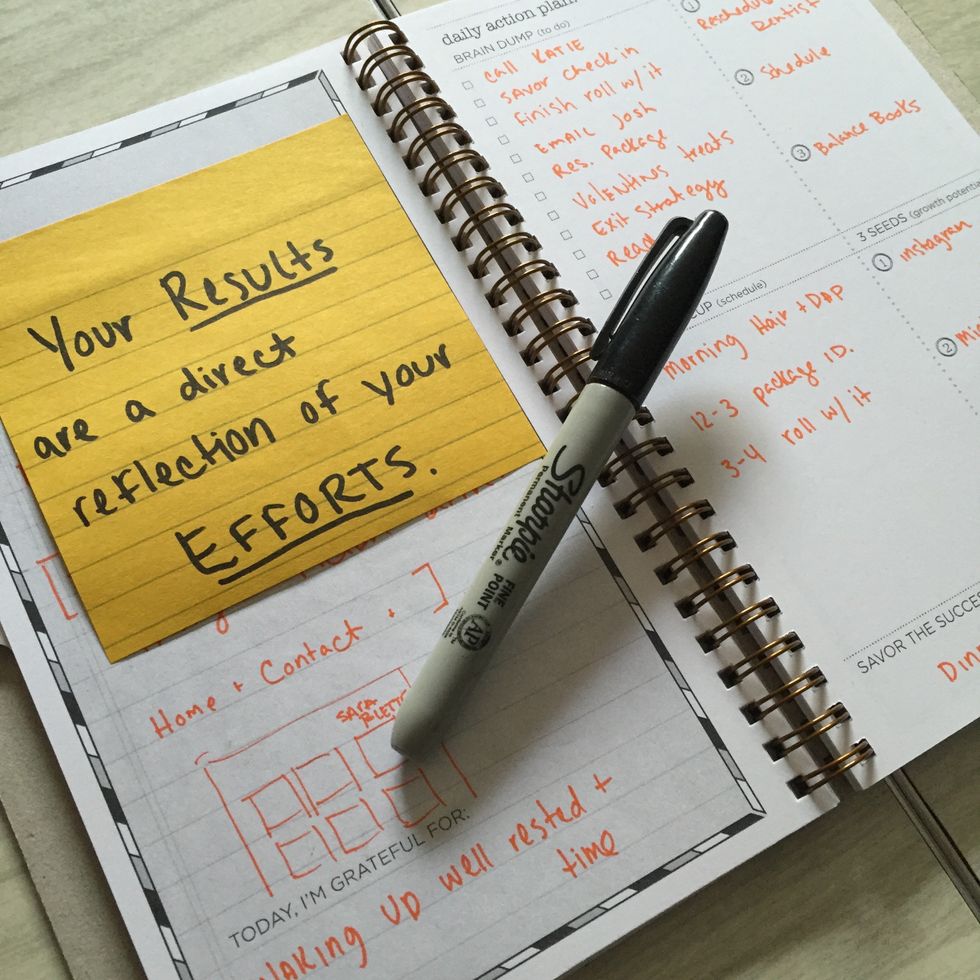 Your Results
are a direct
reflection of your
EFFORTS.
Home + Contact
TODAY, I'M GRATEFUL FOR:
WAKING UP well rested +
time
daily action plan
BRAIN DUMP (to do)
CALL KATIE
SAVOR check in
Finish roll w/ it
EMAIL Josh
Res. Package
VALENTINES treats
Exit Strategy
Read
CUP (schedule)
Morning Hair + DAP
12-3 package ID.
3-4 roll w/ it
1 Reschedule
Dentist
2 Schedule
3 Balance Books
3 SEEDS (growth potential
1 instagram
2
SAVOR THE SUCCES
Sharpie
Permanent Marker
FINE
POINT
AP